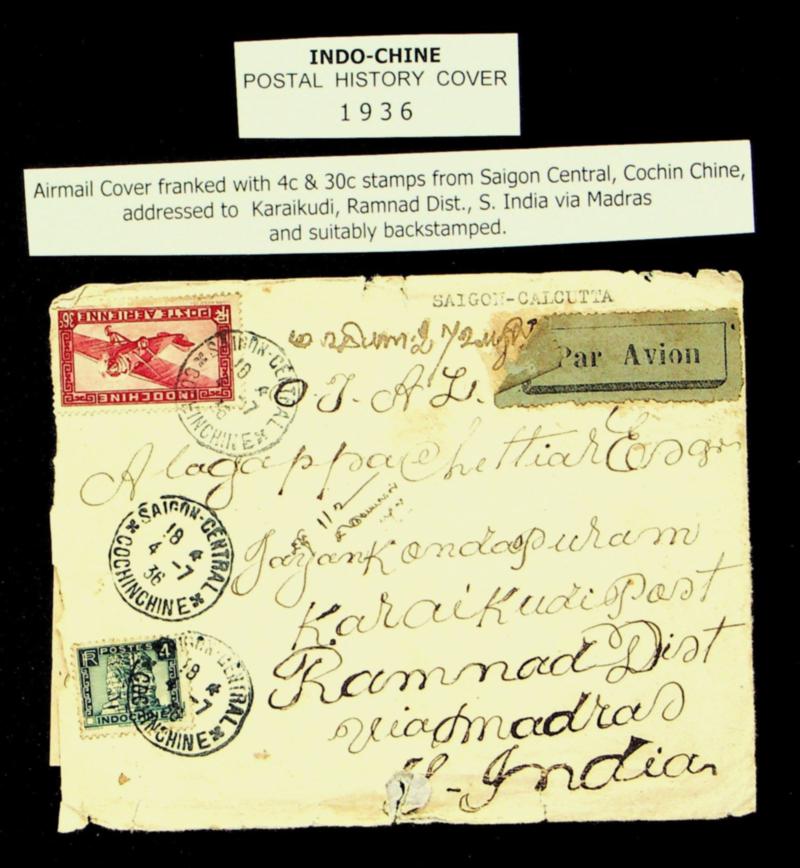 INDO-CHINE
POSTAL HISTORY COVER
1936
Airmail Cover franked with 4c & 30c stamps from Saigon Central, Cochin Chine,
addressed to Karaikudi, Ramnad Dist., S. India via Madras
and suitably backstamped.
SAIGON-CALCUTTA
Par Avion
36c POSTE AERIENNE RF
INDOCHINE
SAIGON-CENTRAL
18 4
-7
COCHINCHINE
O. J. A L.
Alagappa Chettiar Esqr
112
Jayankondapuram
SAIGON-CENTRAL
18 4
4 -7
36
COCHINCHINE
Karaikudi Post
Ramnad Dist
via madras
S. India
RF POSTES 4
INDOCHINE
SAIGON-CENTRAL
18 4
-7
COCHINCHINE